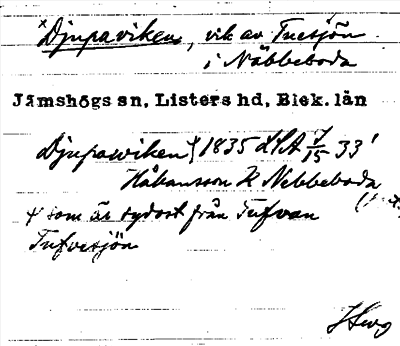 ×Djupaviken, vik av Tuesjön
i Näbbeboda
Jämshögs sn, Listers hd, Blek. län
Djupaviken 1835 LSA 7/15 33'
Håkansson K Nebbeboda
som är sydost från Tufvan
Tufvesjön